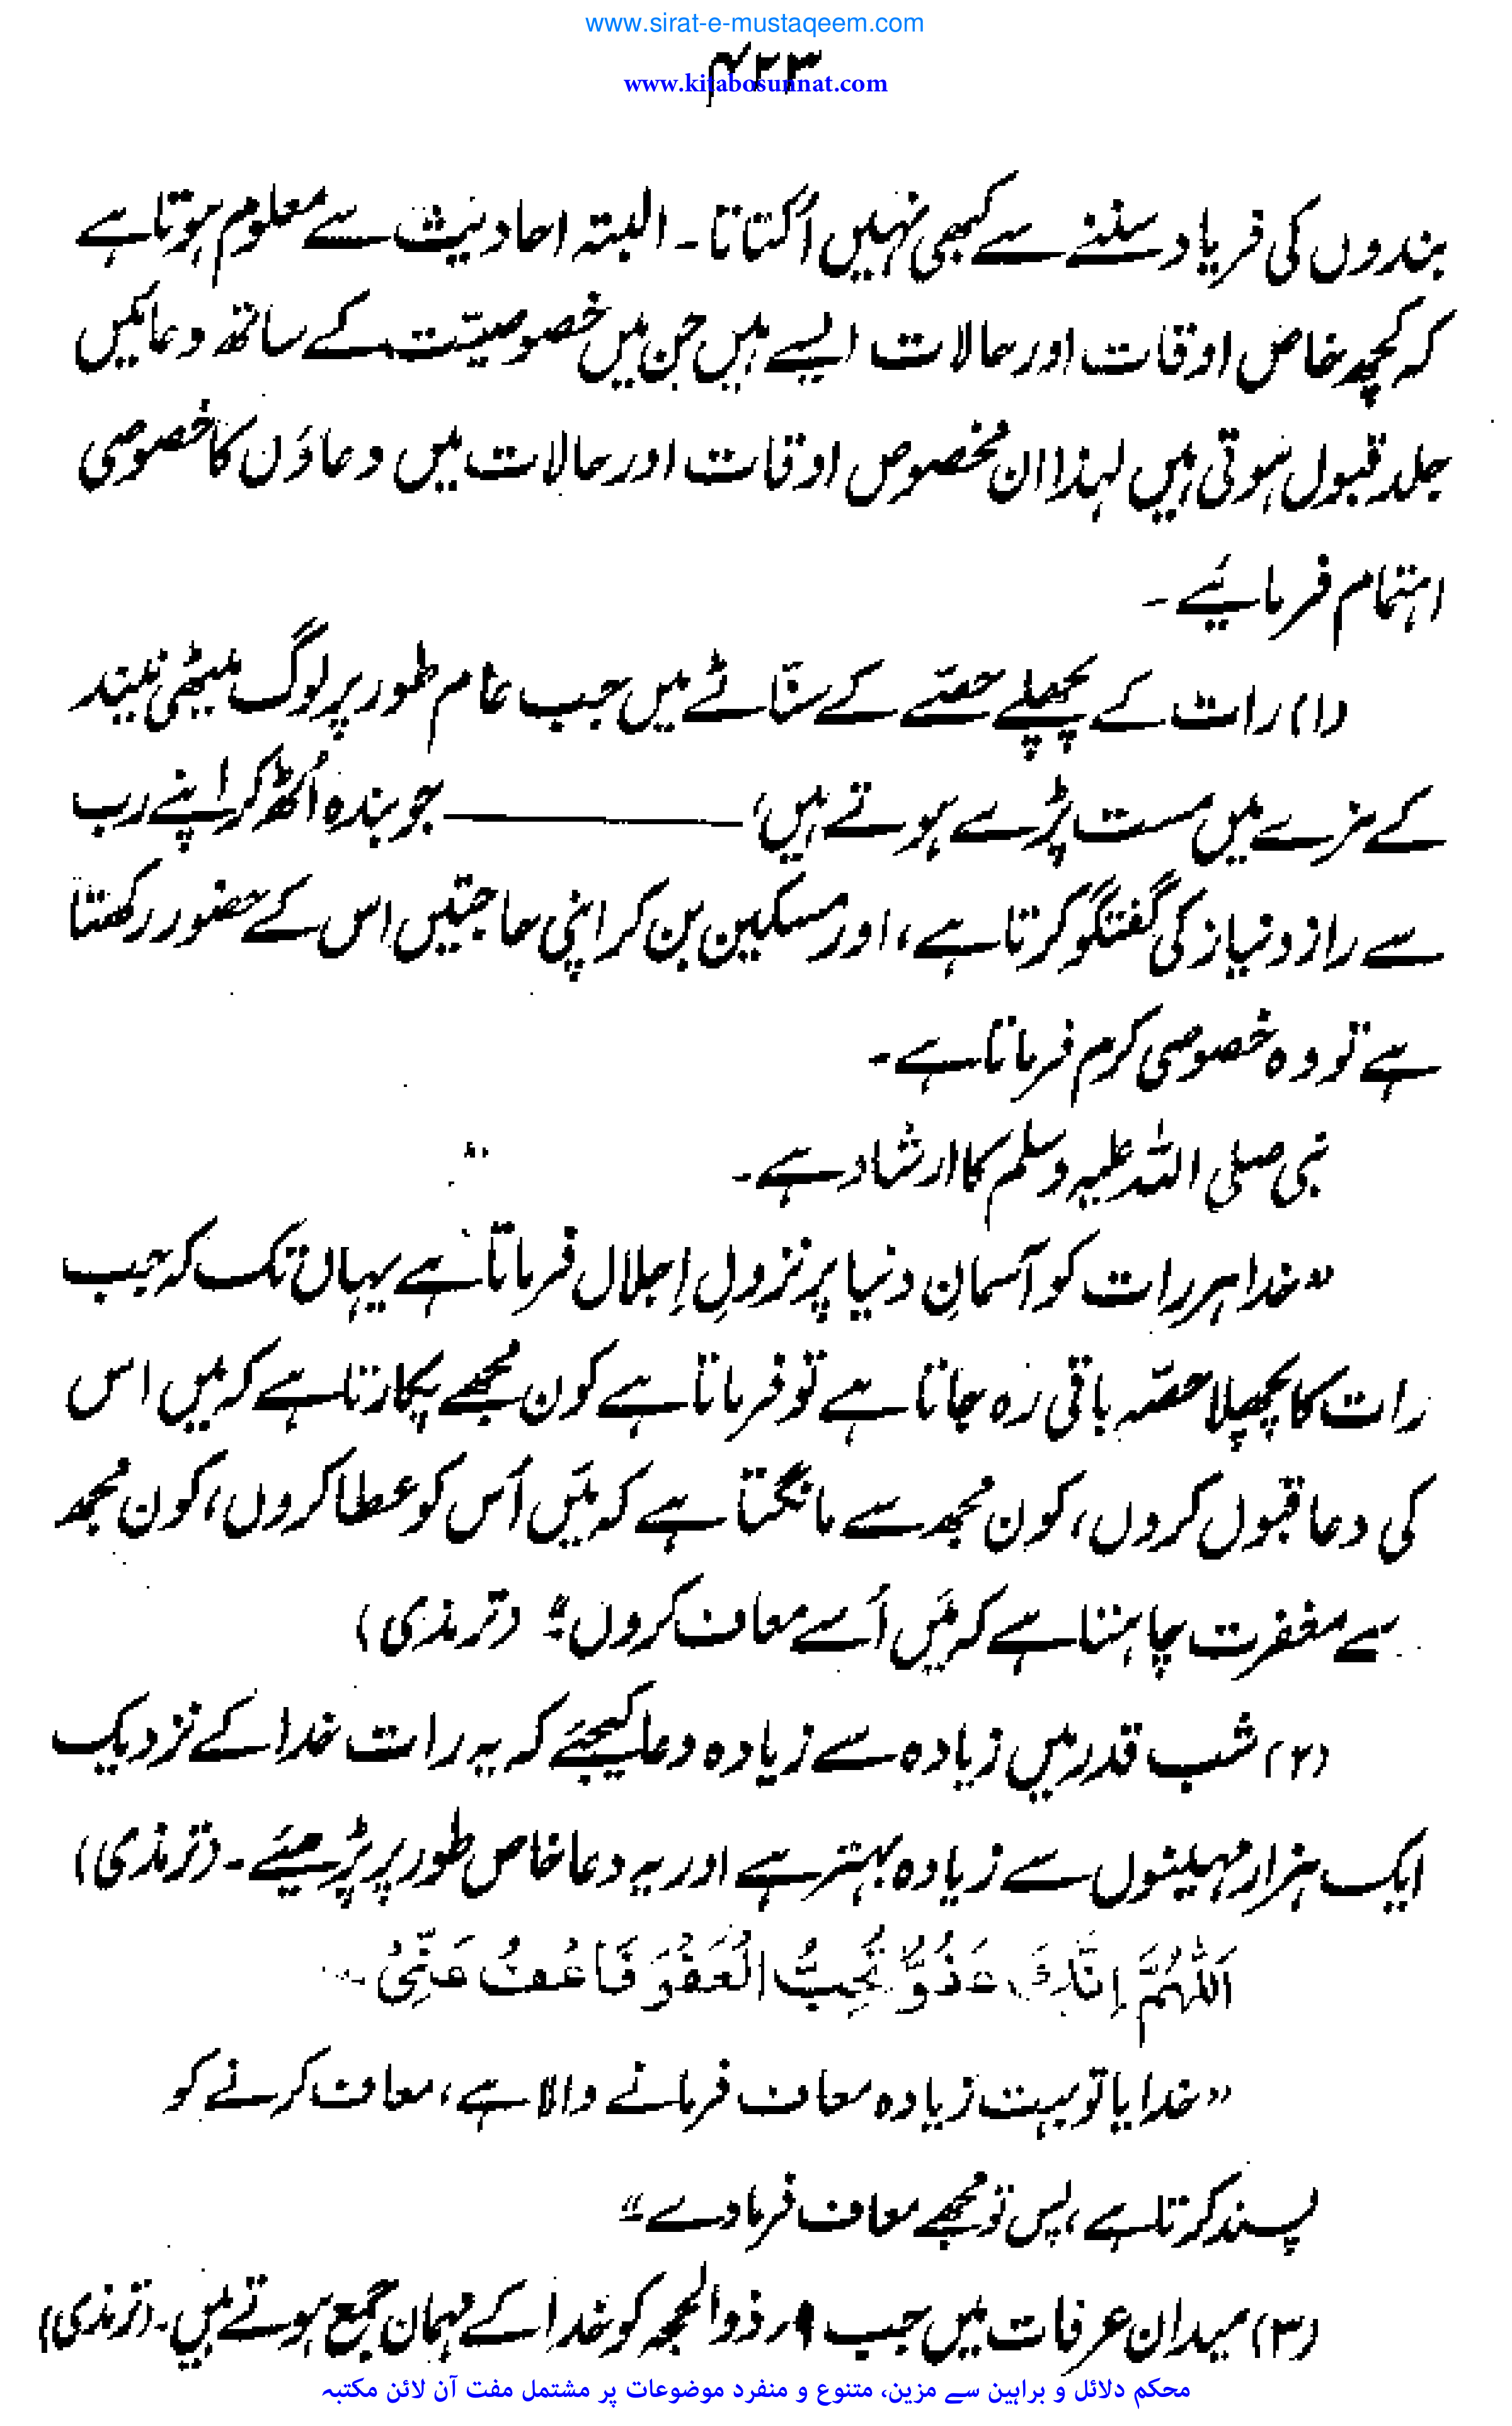 www.sirat-e-mustaqeem.com
۴۲۳
www.kitabosunnat.com
بندوں کی فریاد سننے سے کبھی نہیں اُکتاتا۔ البتہ احادیث سے معلوم ہوتا ہے
کہ کچھ خاص اوقات اور حالات ایسے ہیں جن میں خصوصیّت کے ساتھ دعائیں
جلد قبول ہوتی ہیں لہذا ان مخصوص اوقات اور حالات میں دعاؤں کا خصوصی
اہتمام فرمائیے۔
(۱) رات کے پچھلے حصّے کے سنّاٹے میں جب عام طور پر لوگ میٹھی نیند
کے مزے میں مست پڑے ہوتے ہیں، ——— جو بندہ اُٹھ کر اپنے رب
سے راز و نیاز کی گفتگو کرتا ہے، اور مسکین بن کر اپنی حاجتیں اس کے حضور رکھتا
ہے تو وہ خصوصی کرم فرماتا ہے۔
نبی صلی اللہ علیہ وسلم کا ارشاد ہے۔
”خدا ہر رات کو آسمانِ دنیا پر نزولِ اِجلال فرماتا ہے یہاں تک کہ جب
رات کا پچھلا حصّہ باقی رہ جاتا ہے تو فرماتا ہے کون مجھے پکارتا ہے کہ میں اس
کی دعا قبول کروں، کون مجھ سے مانگتا ہے کہ مَیں اُس کو عطا کروں، کون مجھ
سے مغفرت چاہتا ہے کہ مَیں اُسے معاف کروں۔“ (ترمذی)
(۲) شب قدر میں زیادہ سے زیادہ دعا کیجئے کہ یہ رات خدا کے نزدیک
ایک ہزار مہینوں سے زیادہ بہتر ہے اور یہ دعا خاص طور پر پڑھیئے۔ (ترمذی)
اَللّٰهُمَّ اِنَّكَ عَفُوٌّ تُحِبُّ الْعَفْوَ فَاعْفُ عَنِّیْ۔
”خدایا تو بہت زیادہ معاف فرمانے والا ہے، معاف کرنے کو
پسند کرتا ہے، پس تو مجھے معاف فرما دے۔“
(۳) میدان عرفات میں جب ۹؍ ذوالحجہ کو خدا کے مہمان جمع ہوتے ہیں۔ (ترمذی)
محکم دلائل و براہین سے مزین، متنوع و منفرد موضوعات پر مشتمل مفت آن لائن مکتبہ